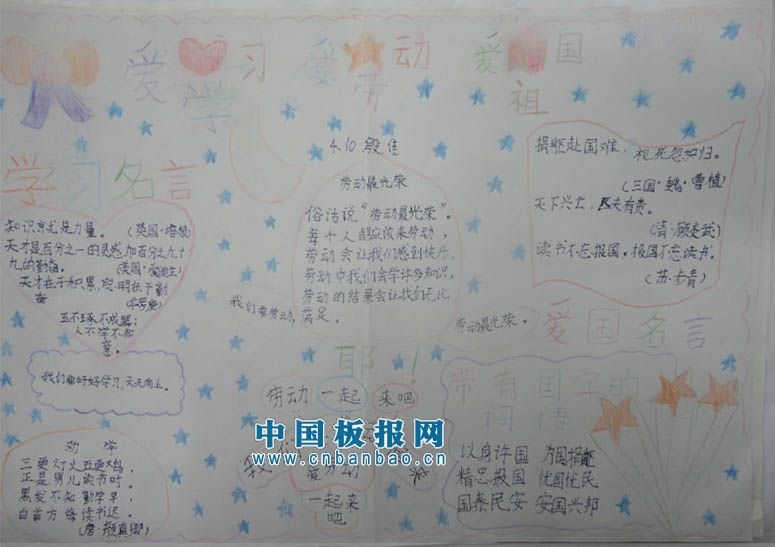 爱学习
爱劳动
爱祖国
4.10 殷佳
学习名言
知识就是力量。
(英国·培根)
天才是百分之一的灵感,加百分之九十
九的勤奋。
(美国·爱迪生)
天才在于积累,聪明在于勤
奋
(华罗庚)
玉不琢不成器;
人不学不知
意。
我们要好好学习,天天向上。
劝学
三更灯火五更鸡,
正是男儿读书时。
黑发不知勤学早,
白首方悔读书迟。
(唐·颜真卿)
劳动最光荣
俗话说“劳动最光荣”。
每个人都应该来劳动,
劳动会让我们感到快乐。
劳动中我们会学许多知识,
劳动的结果会让我们无比
满足。
我们爱劳动,
劳动最光荣。
耶!
劳动 一起 来吧
爱劳动
一起来
吧
捐躯赴国难,视死忽如归。
(三国·魏·曹植)
天下兴亡,匹夫有责。
(清·顾炎武)
读书不忘报国,报国不忘读书。
(苏步青)
爱国名言
带有国字的
词语
以身许国 为国捐躯
精忠报国 忧国忧民
国泰民安 安国兴邦
中国板报网
www.cnbanbao.cn